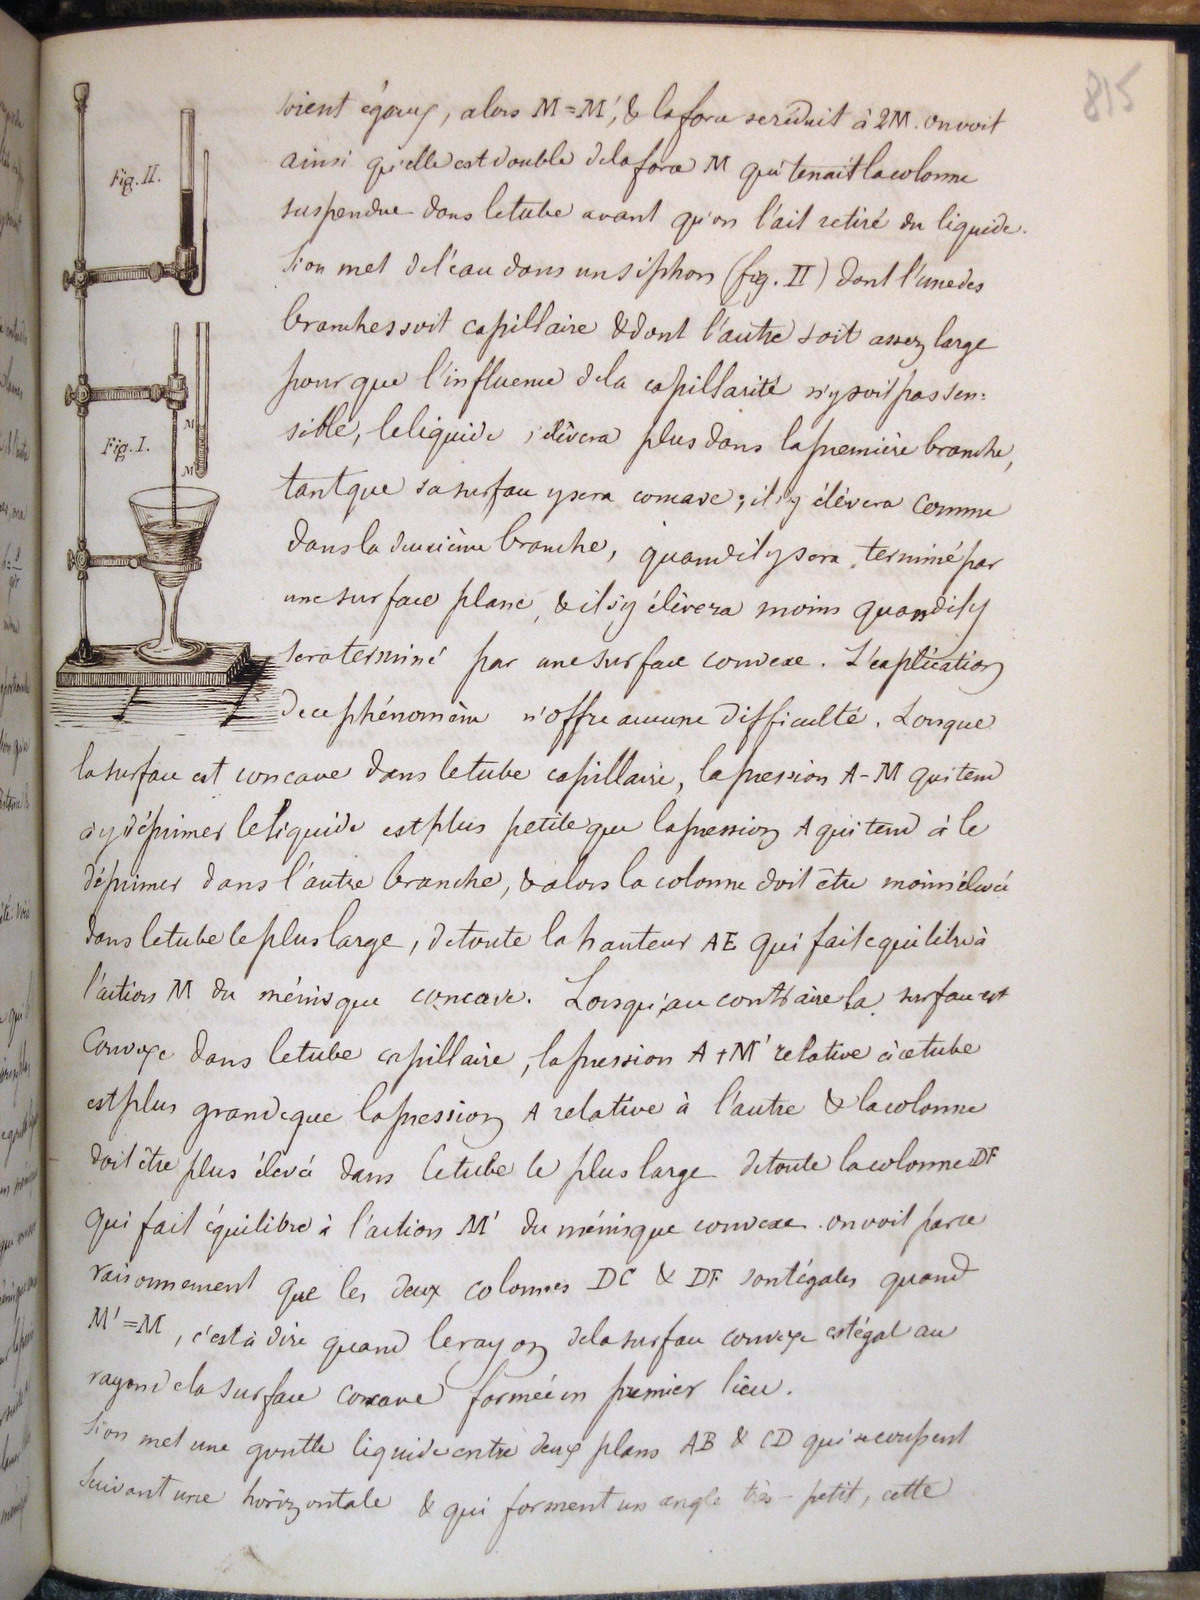 815
soient égaux, alors M=M', & la force se réduit à 2M. on voit
ainsi qu'elle est double de la force M qui tenait la colonne
suspendue dans le tube avant qu'on l'ait retiré du liquide.
Si on met de l'eau dans un siphon (fig. II) dont l'une des
branches soit capillaire & dont l'autre soit assez large
pour que l'influence de la capillarité n'y soit pas sen=
sible, le liquide s'élèvera plus dans la première branche,
tant que sa surface y sera concave; il s'y élèvera comme
dans la deuxième branche, quand il y sera terminé par
une surface plane, & il s'y élèvera moins quand il y
sera terminé par une surface convexe. L'explication
de ce phénomène n'offre aucune difficulté. Lorsque
la surface est concave dans le tube capillaire, la pression A-M qui tend
à y déprimer le liquide est plus petite que la pression A qui tend à le
déprimer dans l'autre branche, & alors la colonne doit être moins élevée
dans le tube le plus large, de toute la hauteur AE qui fait équilibre à
l'action M du ménisque concave. Lorsqu'au contraire la surface est
Convexe dans le tube capillaire, la pression A+M' relative à ce tube
est plus grande que la pression A relative à l'autre & la colonne
doit être plus élevée dans le tube le plus large de toute la colonne DF
qui fait équilibre à l'action M' du ménisque convexe. on voit par ce
raisonnement que les deux colonnes DC & DF sont égales quand
M'=M, c'est à dire quand le rayon de la surface convexe est égal au
rayon de la surface concave formée en premier lieu.
Si on met une goutte liquide entre deux plans AB & CD qui se coupent
Suivant une horizontale & qui forment un angle très-petit, cette
Fig. II.
Fig. I.
M
M